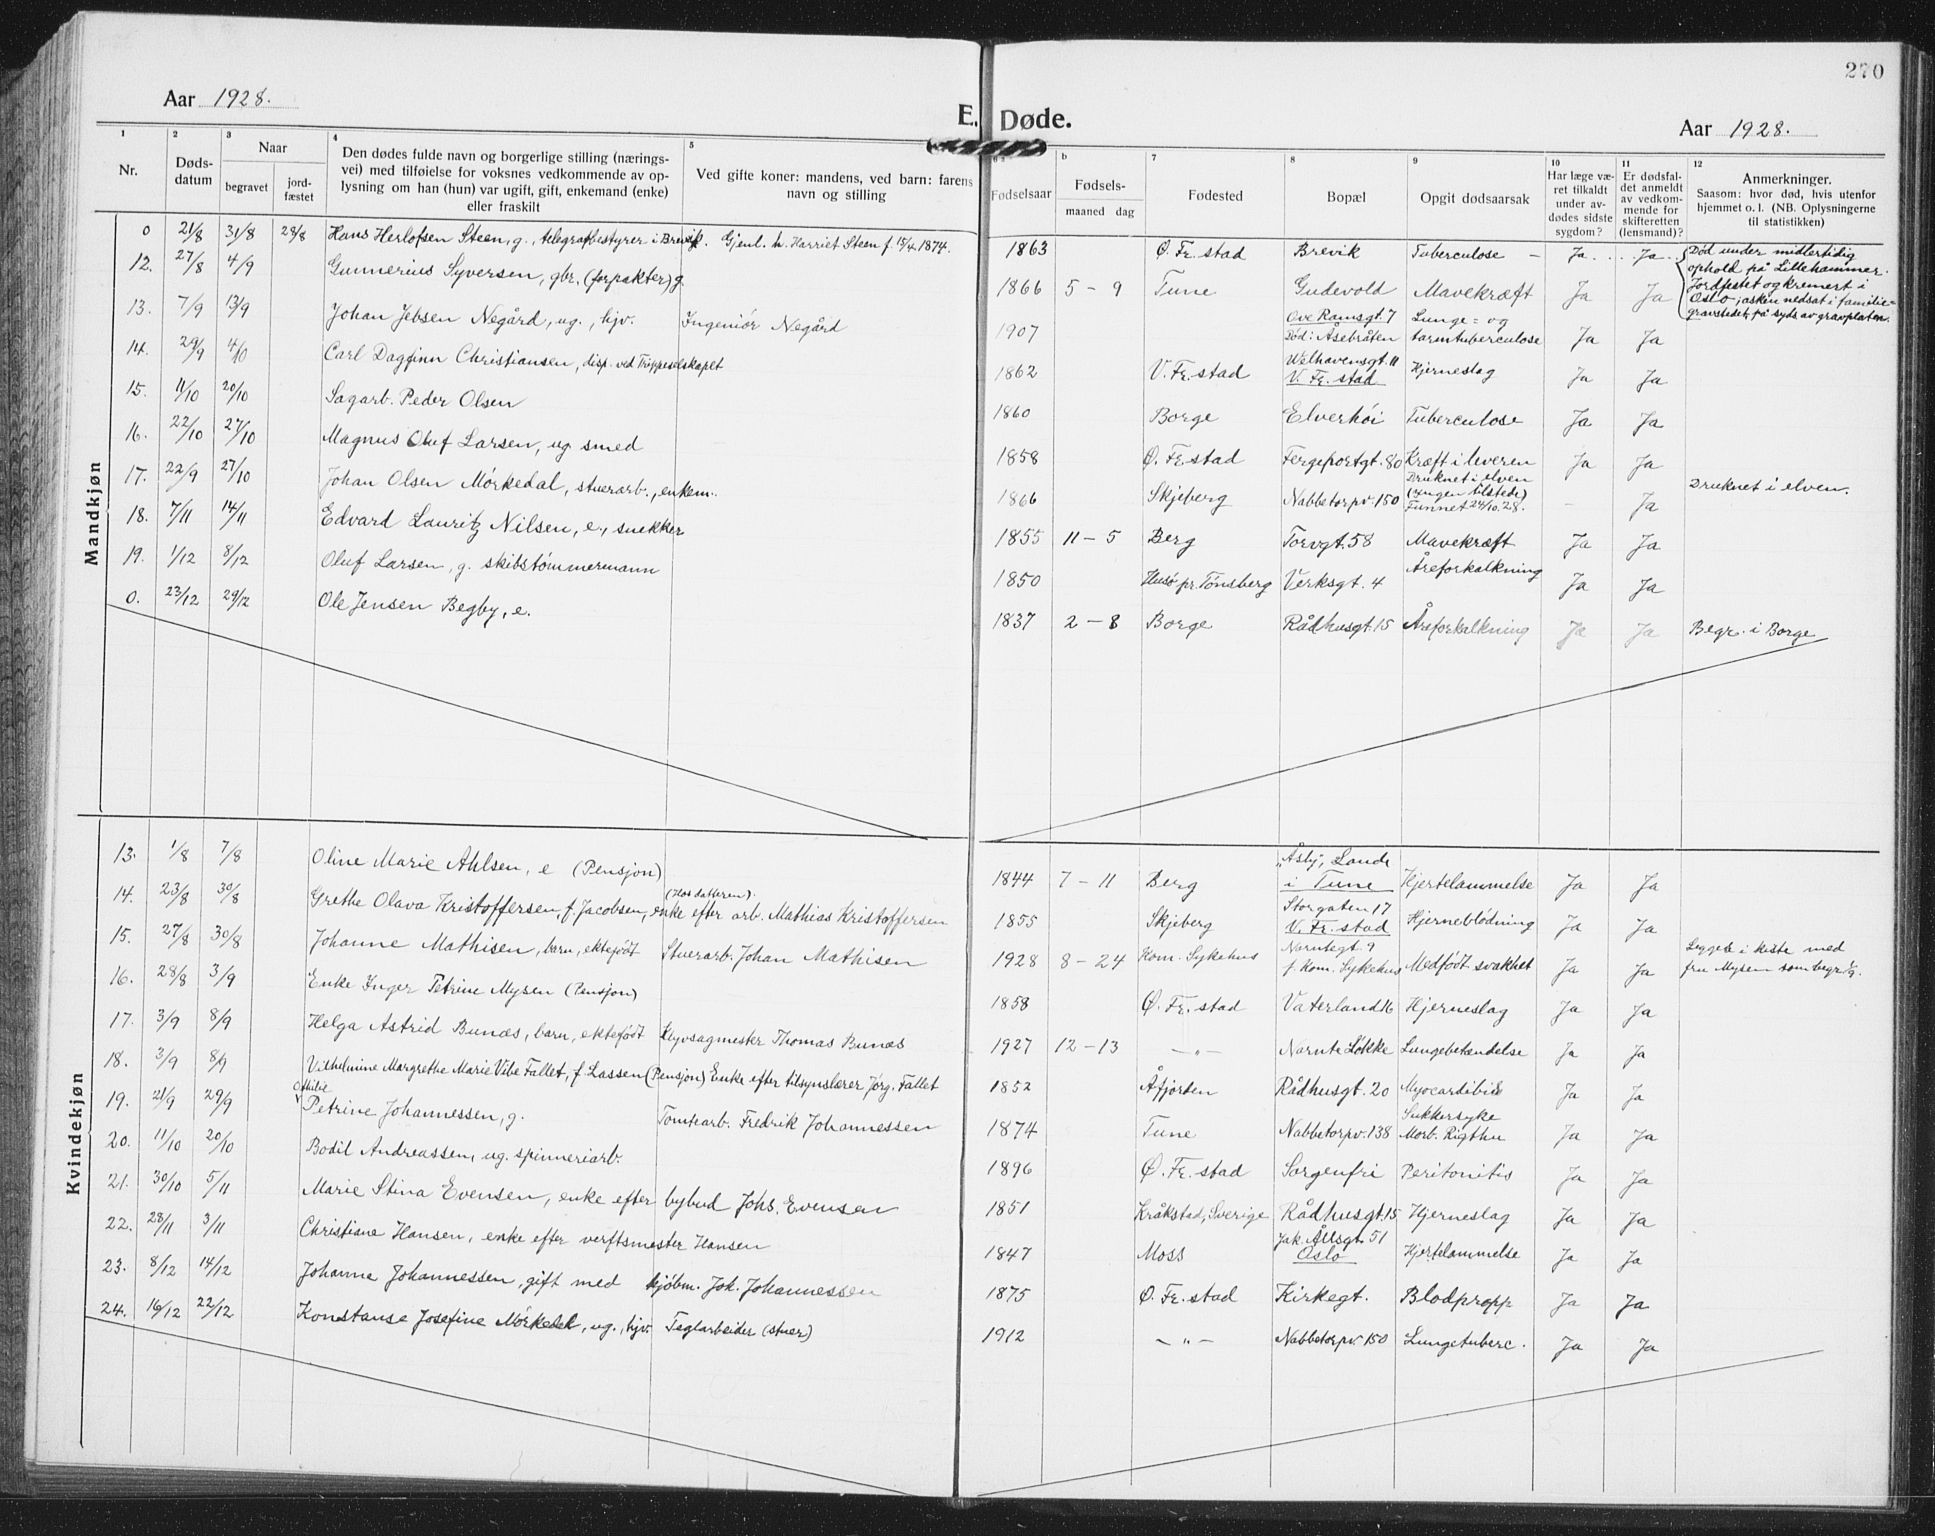 270
Aar 1928.
E. Døde.
Aar 1928.
1
2
3
4
5
6 a
b
7
8
9
10
11
12
Nr.
Døds-
datum
Naar
begravet
jord-
fæstet
Den dødes fulde navn og borgerlige stilling (nærings-
vei) med tilføielse for voksnes vedkommende av op-
lysning om han (hun) var ugift, gift, enkemand (enke)
eller fraskilt
Ved gifte koner: mandens, ved barn: farens
navn og stilling
Fødselsaar
Fødsels-
maaned dag
Fødested
Bopæl
Opgit dødsaarsak
Har læge væ-
ret tilkaldt
under av-
dødes sidste
sygdom?
Er dødsfal-
det anmeldt
av vedkom-
mende for
skifteretten
(lensmand)?
Anmerkninger.
Saasom: hvor død, hvis utenfor
hjemmet o. l. (NB. Oplysningerne
til statistikken)
Mandkjøn
0 21/8 31/8 28/8 Hans Herlofsen Steen, g., telegrafbestyrer i Brevik. Gjenl. h. Harriet Steen f. 15/4 1874. 1863 Ø. Fr. stad Brevik Tuberculose - Ja Ja Død under midlertidig
ophold på Lillehammer.
Jordfestet og kremert i
Oslo, asken nedsat i familie=
gravstedet, på syds av gravplaten.
12. 27/8 4/9 Gunnerius Syversen, gbr. (forpakter) g. 1866 5 - 9 Tune Gudevold Mavekræft Ja Ja
13. 7/9 13/9 Johan Jebsen Negård, ug., hjv. Ingeniør Negård 1907 Ove Ramsgt. 7
Død i Åsebråten Lunge= og
tarmtuberculose Ja Ja
14. 29/9 4/10 Carl Dagfinn Christiansen, disp. ved Trippeselskapet 1862 V. Fr. stad Welhavensgt. 11
V. Fr. stad Hjerneslag Ja Ja
15. 11/10 20/10 Sagarb. Peder Olsen 1860 Borge Elverhöi Tuberculose Ja Ja
16. 22/10 27/10 Magnus Oluf Larsen, ug. smed 1858 Ø. Fr. stad Fergeportgt. 80 Kræft i leveren Ja Ja
17. 22/9 27/10 Johan Olsen Mörkedal, stuerarb., enkem. 1866 Skjeberg Nabbetorpv. 150 Druknet i elven
(ingen tilstede)
Funnet 24/10. 28. - Ja Druknet i elven.
18. 7/11 14/11 Edvard Lauritz Nilsen, e., snekker 1855 11 - 5 Berg Torvgt. 58 Mavekræft Ja Ja
19. 1/12 8/12 Oluf Larsen, g. skibstömmermann 1850 Husø pr. Tönsberg Verksgt. 4 Åreforkalkning Ja Ja
0. 23/12 29/12 Ole Jensen Begby, e. 1837 2 - 8 Borge Rådhusgt. 15 Åreforkalkning Ja Ja Begr. i Borge
Kvindekjøn
13. 1/8 7/8 Oline Marie Ahlsen, e (Pensjon) 1844 7 - 11 Berg "Åsly", Lande
i Tune Hjertelammelse Ja Ja
14. 23/8 30/8 Grethe Olava Kristoffersen, f. Jacobsen, enke efter arb. Mathias Kristoffersen (Hos datteren). 1855 Skjeberg Storgaten 17
V. Fr. stad Hjerneblödning Ja Ja
15. 27/8 30/8 Johanne Mathisen, barn, ektefödt Stuerarb. Johan Mathisen 1928 8 - 24 Kom. Sykehus Narntegt. 9
f. Kom. Sykehus Medfödt svakhet Ja Ja Legges i kiste med
fru Mysen som begr. 3/9.
16. 28/8 3/9 Enke Inger Petrine Mysen (Pensjon) 1858 Ø. Fr. stad Vaterland 16 Hjerneslag Ja Ja
17. 3/9 8/9 Helga Astrid Bunæs, barn, ektefödt Klyvsagmester Thomas Bunæs 1927 12 - 13 - " - Narnte Løkke Lungebetændelse Ja Ja
18. 3/9 8/9 Vilhelmine Margrethe Marie Vibe Fallet, f. Lassen (Pensjon) Enke efter tilsynslærer Jörg. Fallet 1852 Åfjorden Rådhusgt. 20 Myocarditis Ja Ja
19. 21/9 29/9 Ottilie
Petrine Johannessen, g. Tomtearb. Fredrik Johannessen 1874 Tune Nabbetorpv. 138 Sukkersyke
Morb. Rigthu Ja Ja
20. 11/10 20/10 Bodil Andreassen, ug. spinneriarb. 1896 Ø. Fr. stad Sorgenfri Peritonitis Ja Ja
21. 30/10 5/11 Marie Stina Evensen, enke efter bybud Johs. Evensen 1851 Kråkstad, Sverige Rådhusgt. 15 Hjerneslag Ja Ja
22. 28/11 3/11 Christiane Hansen, enke efter verftsmester Hansen 1847 Moss Jak. Állsgt. 51
Oslo Hjertelammelse Ja Ja
23. 8/12 14/12 Johanna Johannessen, gift med kjöbm. Joh. Johannessen 1875 Ø. Fr. stad Kirkegt. Blodpropp Ja Ja
24. 16/12 22/12 Konstanse Josefine Mörkedal, ug., hjv. Teglarbeider (stuer) 1912 - " - Nabbetorpv. 150 Lungetuberc. Ja Ja